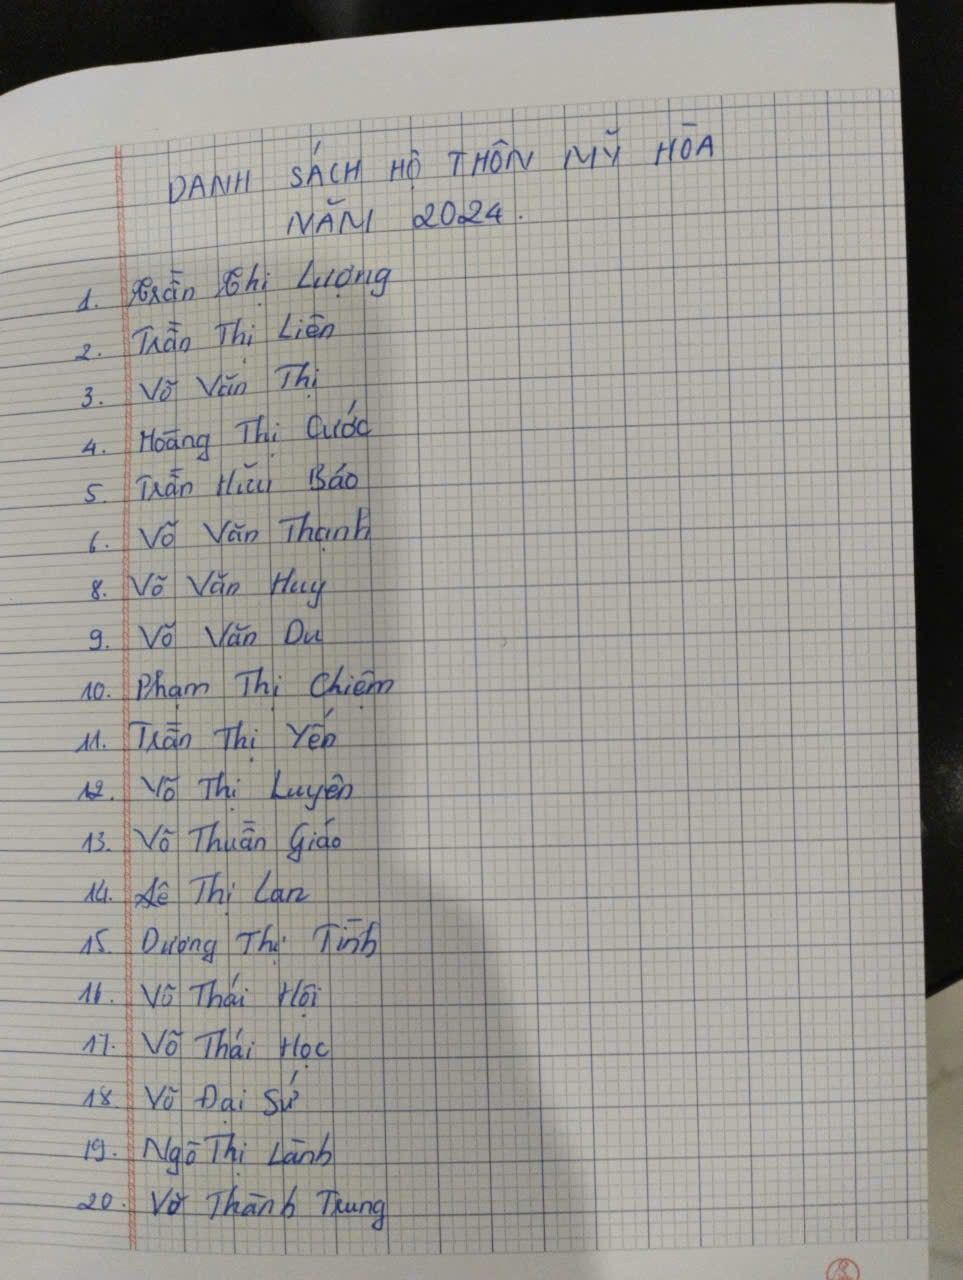 DANH SÁCH HỘ THÔN MỸ HÒA
NĂM 2024.
1. Trần Thị Lượng
2. Trần Thị Liên
3. Võ Văn Thị
4. Hoàng Thị Cước
5. Trần Hữu Báo
6. Võ Văn Thạnh
8. Võ Văn Huy
9. Võ Văn Du
10. Phạm Thị Chiêm
11. Trần Thị Yến
12. Võ Thị Luyên
13. Võ Thuần Giáo
14. Lê Thị Lan
15. Dương Thị Tình
16. Võ Thái Hội
17. Võ Thái Học
18. Võ Đại Sứ
19. Ngô Thị Lành
20. Võ Thành Trung